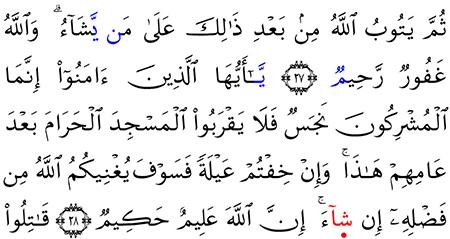 ثُمَّ يَتُوبُ ٱللَّهُ مِنۢ بَعْدِ ذَٰلِكَ عَلَىٰ مَن يَّشَآءُ ۗ وَٱللَّهُ
غَفُورٌ رَّحِيمٌ ۝٢٧ يَّـٰٓأَيُّهَا ٱلَّذِينَ ءَامَنُوٓا۟ إِنَّمَا
ٱلْمُشْرِكُونَ نَجَسٌ فَلَا يَقْرَبُوا۟ ٱلْمَسْجِدَ ٱلْحَرَامَ بَعْدَ
عَامِهِمْ هَـٰذَا ۚ وَإِنْ خِفْتُمْ عَيْلَةً فَسَوْفَ يُغْنِيكُمُ ٱللَّهُ مِن
فَضْلِهِۦٓ إِن شَآءَ ۚ إِنَّ ٱللَّهَ عَلِيمٌ حَكِيمٌ ۝٢٨ قَـٰتِلُوا۟